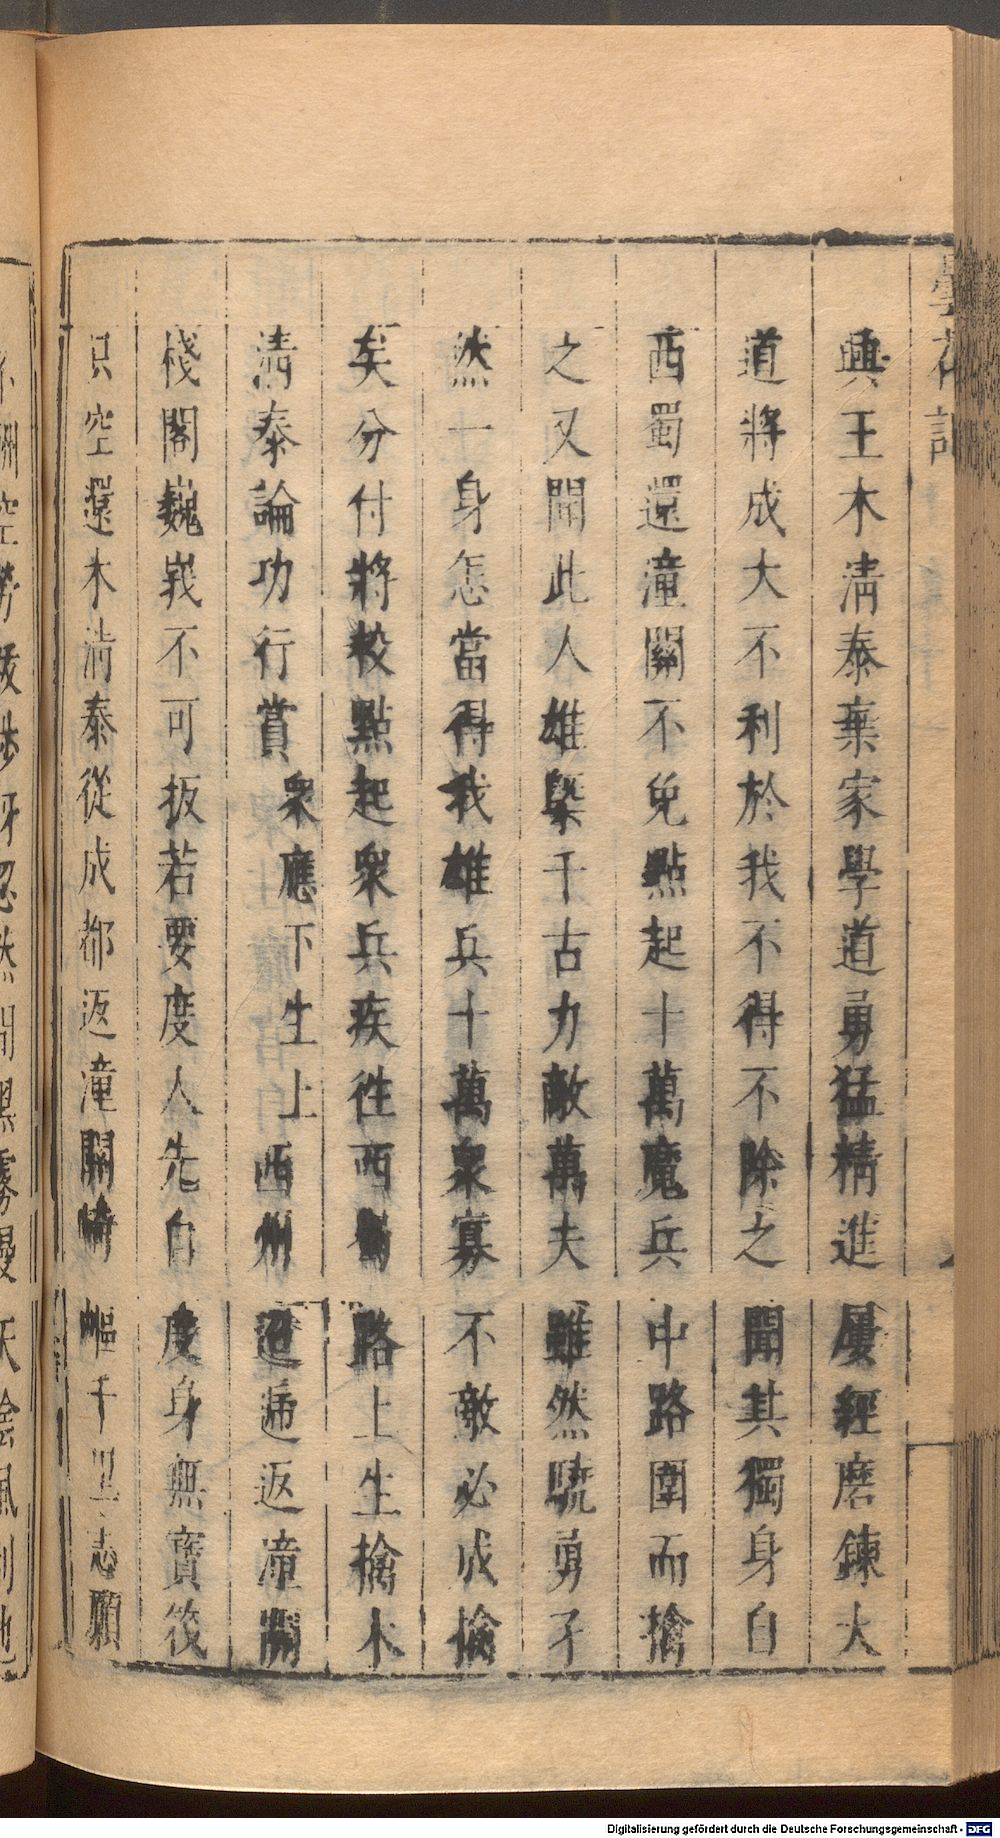 曇花記
興王木清泰棄家學道勇猛精進屢經磨鍊大
道將成大不利於我不得不除之聞其獨身自
西蜀還潼關不免點起十萬魔兵中路圍而擒
之又聞此人雄槩千古力敵萬夫雖然驍勇孑
然一身怎當得我雄兵十萬衆寡不敵必成擒
矣分付將校點起衆兵疾徃西蜀路上生擒木
清泰論功行賞衆應下生上西州迢遞返潼關
棧閣巍峩不可扳若要度人先自度身無寶筏
只空還木清泰從成都返潼關崎嶇千里志願
天陰風
Digitalisierung gefördert durch die Deutsche Forschungsgemeinschaft - DFG